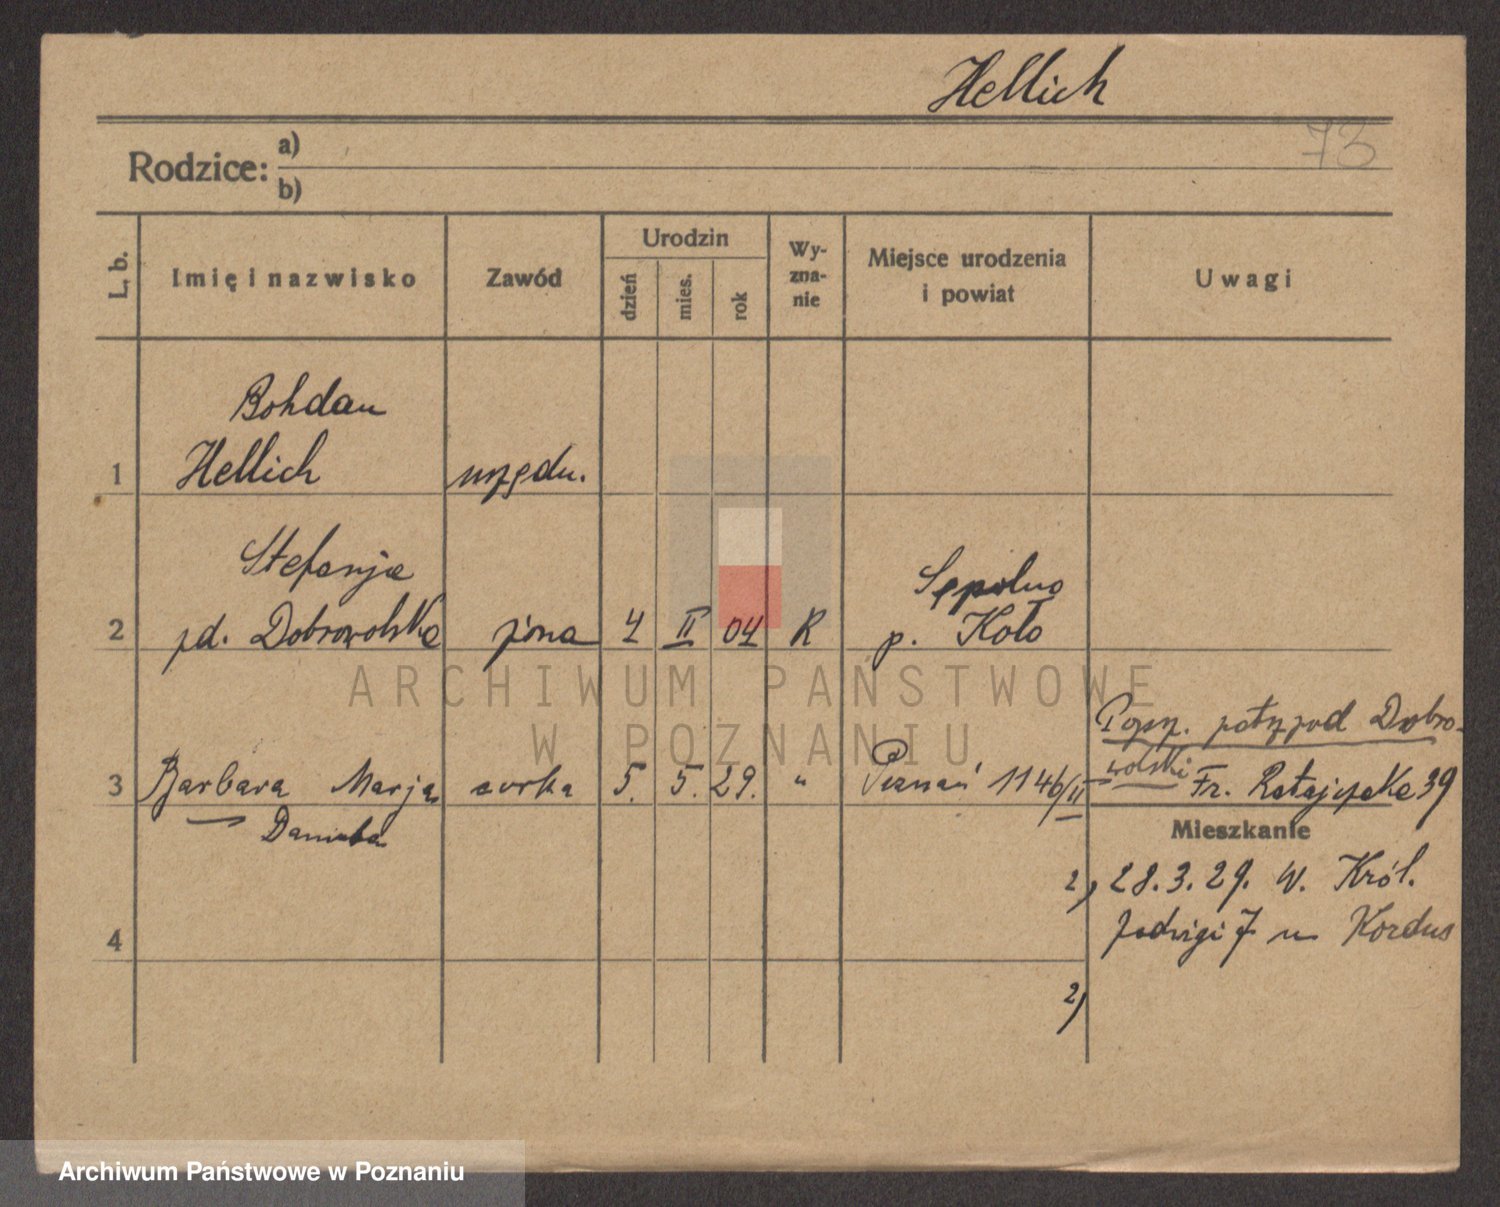 Hellich
73
Rodzice: a)
b)
L. b.
Imię i nazwisko
Zawód
Urodzin
dzień
mies.
rok
Wy-
zna-
nie
Miejsce urodzenia
i powiat
Uwagi
Bohdan
1 Hellich urzędn.
Stefanja Sępolno
2 żona 4 II 04 R p. Koło
Dobrowolska
ARCHIWUM PAŃSTWOWE
W POZNANIU
Dobro-
wolski Fr. Ratajczaka 39
3 Barbara Marja córka 5. 5. 29. " Poznań 1146/II
Mieszkanie
2) 28.3.29. W. Król.
Jadwigi 7 u Kordus
4
2)
Archiwum Państwowe w Poznaniu